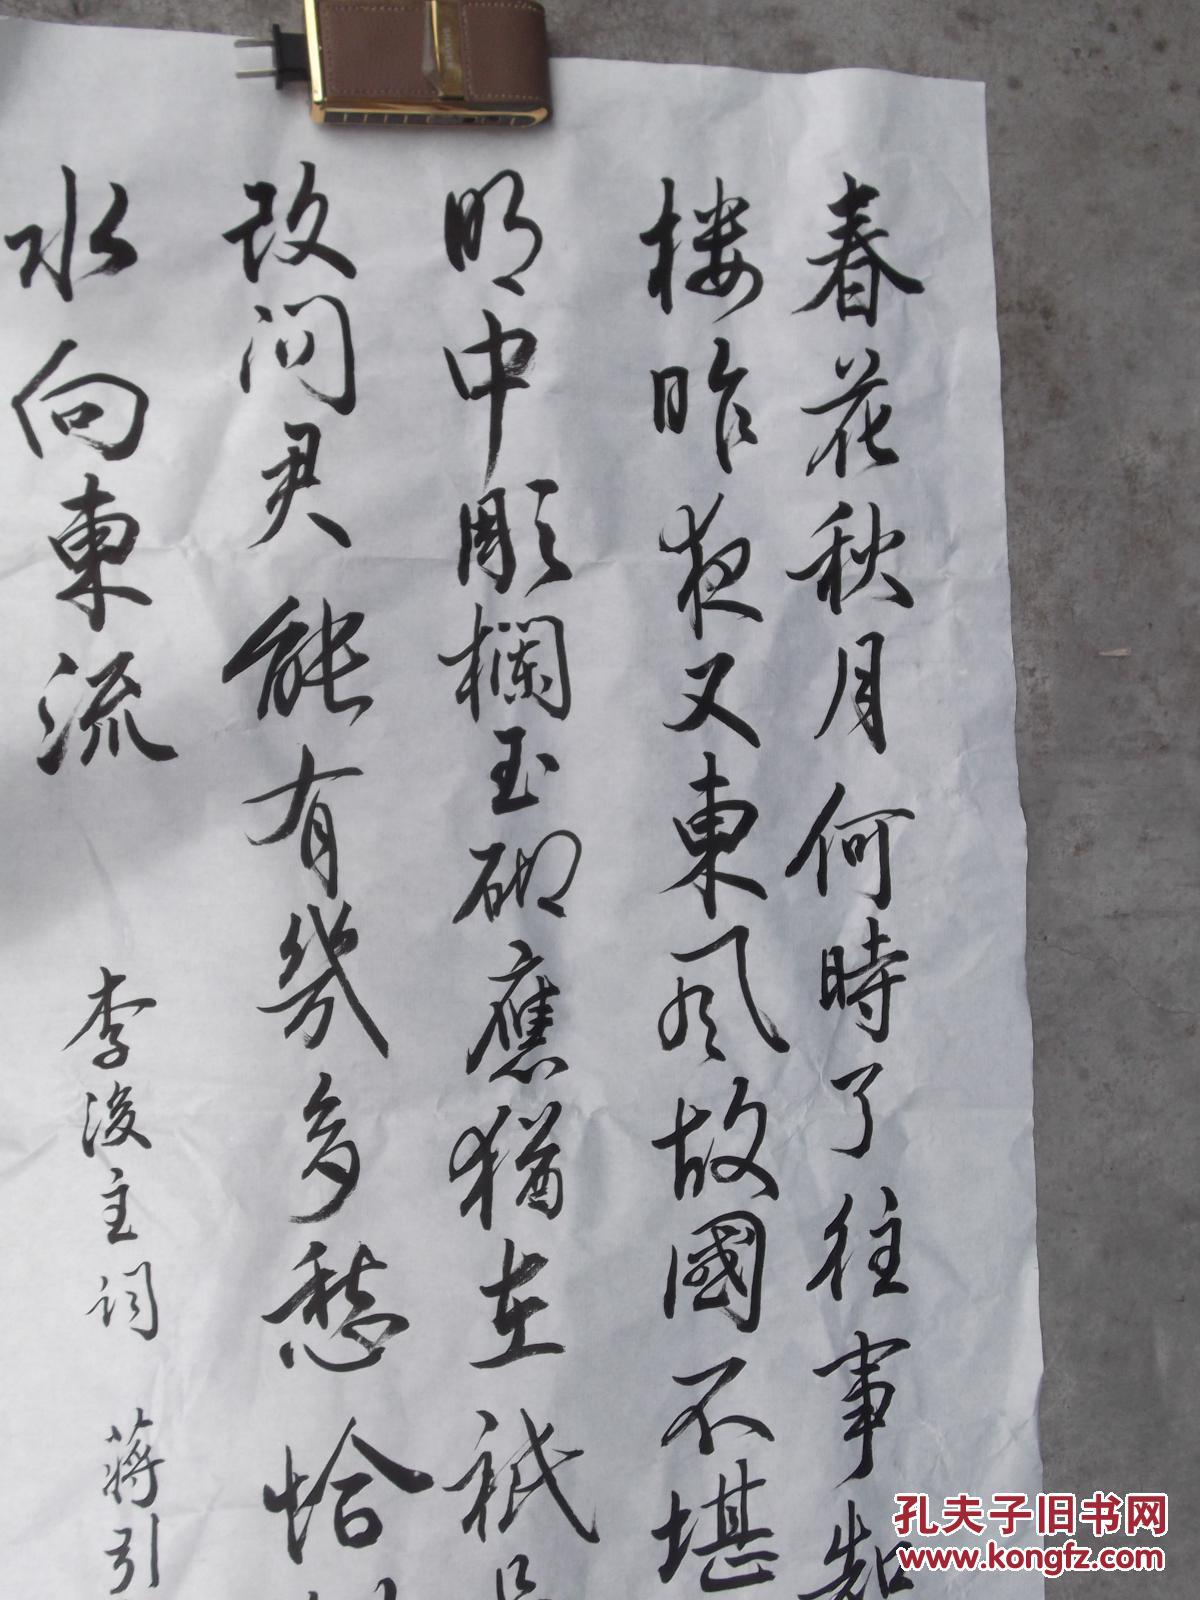 春花秋月何時了往事知
楼昨夜又東风故國不堪
明中彫欄玉砌應猶在祇是
改问君能有幾多愁恰
水向東流
李後主词 蒋引
孔夫子旧书网
www.kongfz.com